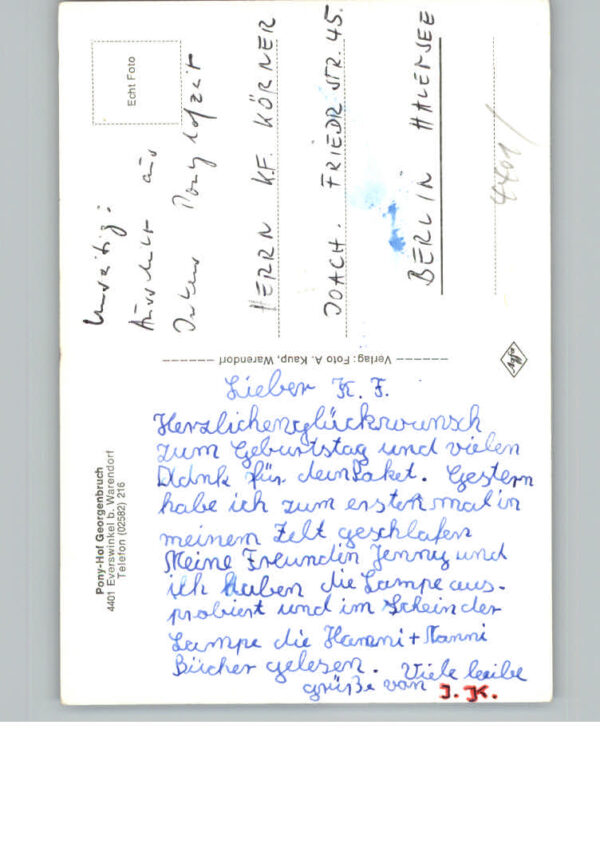 Lieber K. F.
Herzlichenglückwunsch
zum Geburtstag und vielen
Ddank für deinPaket. Gestern
habe ich zum ersten mal in
meinem Zelt geschlafen
Meine Freundin Jenny und
ich haben die Lampe aus-
probiert und im Schein der
Lampe die Hanni + Nanni
Bücher gelesen. Viele leibe
grüße von J. K.
Pony-Hof Georgenbruch
4401 Everswinkel b. Warendorf
Telefon (02582) 216
Verlag: Foto A. Kaup, Warendorf
Echt Foto
aus
HERRN K.F. KÖRNER
JOACH. FRIEDR STR. 45.
BERLIN HALENSEE
4401/